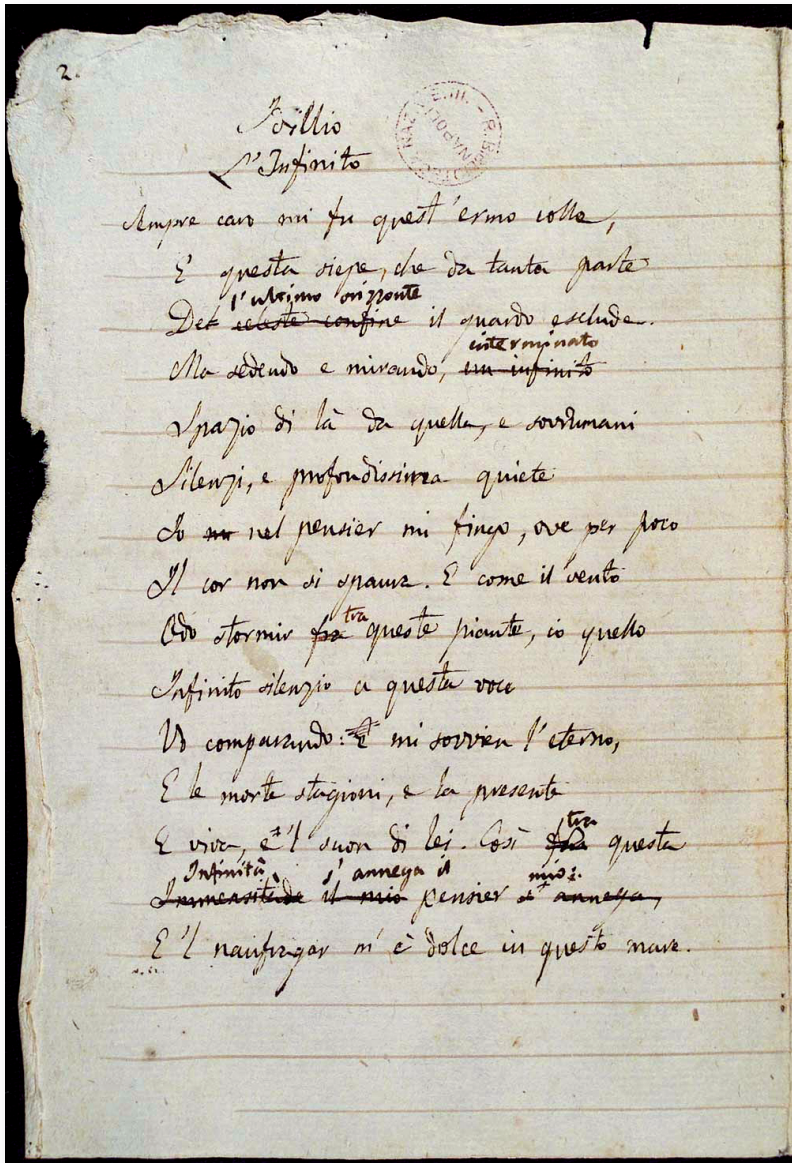 2.
R. BIBLIOTECA NAZ. NAPOLI
Idillio
L'Infinito
Sempre caro mi fu quest'ermo colle,
E questa siepe, che da tanta parte
l'ultimo orizzonte
Del celeste confine il guardo esclude.
interminato
Ma sedendo e mirando, un infinito
Spazio di là da quella, e sovrumani
Silenzi, e profondissima quiete
Io nel pensier mi fingo, ove per poco
Il cor non si spaura. E come il vento
tra
Odo stormir fra queste piante, io quello
Infinito silenzio a questa voce
Vo comparando: E mi sovvien l'eterno,
E le morte stagioni, e la presente
tra
E viva, e 'l suon di lei. Così fra questa
Infinità s'annega il mio:
Immensitade il mio pensier s'annega,
E 'l naufragar m'è dolce in questo mare.